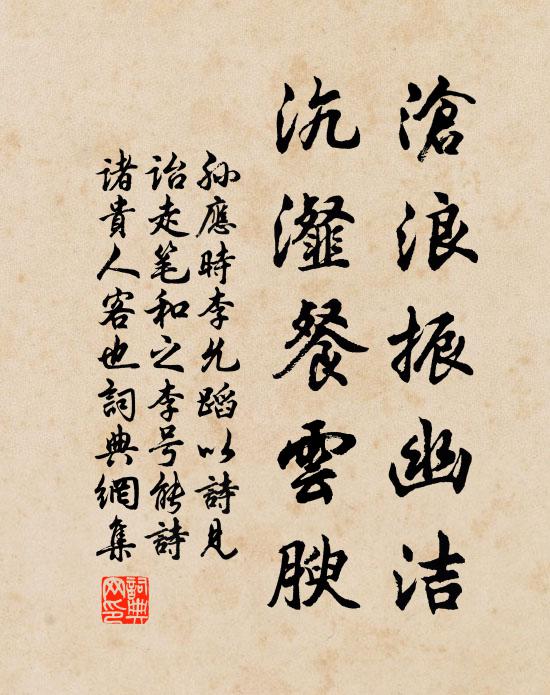 滄浪振幽洁
沆瀣餐雲腴
孙應時李允蹈以詩見
诒走笔和之李号能詩
諸貴人客也詞典網集
詞典网印